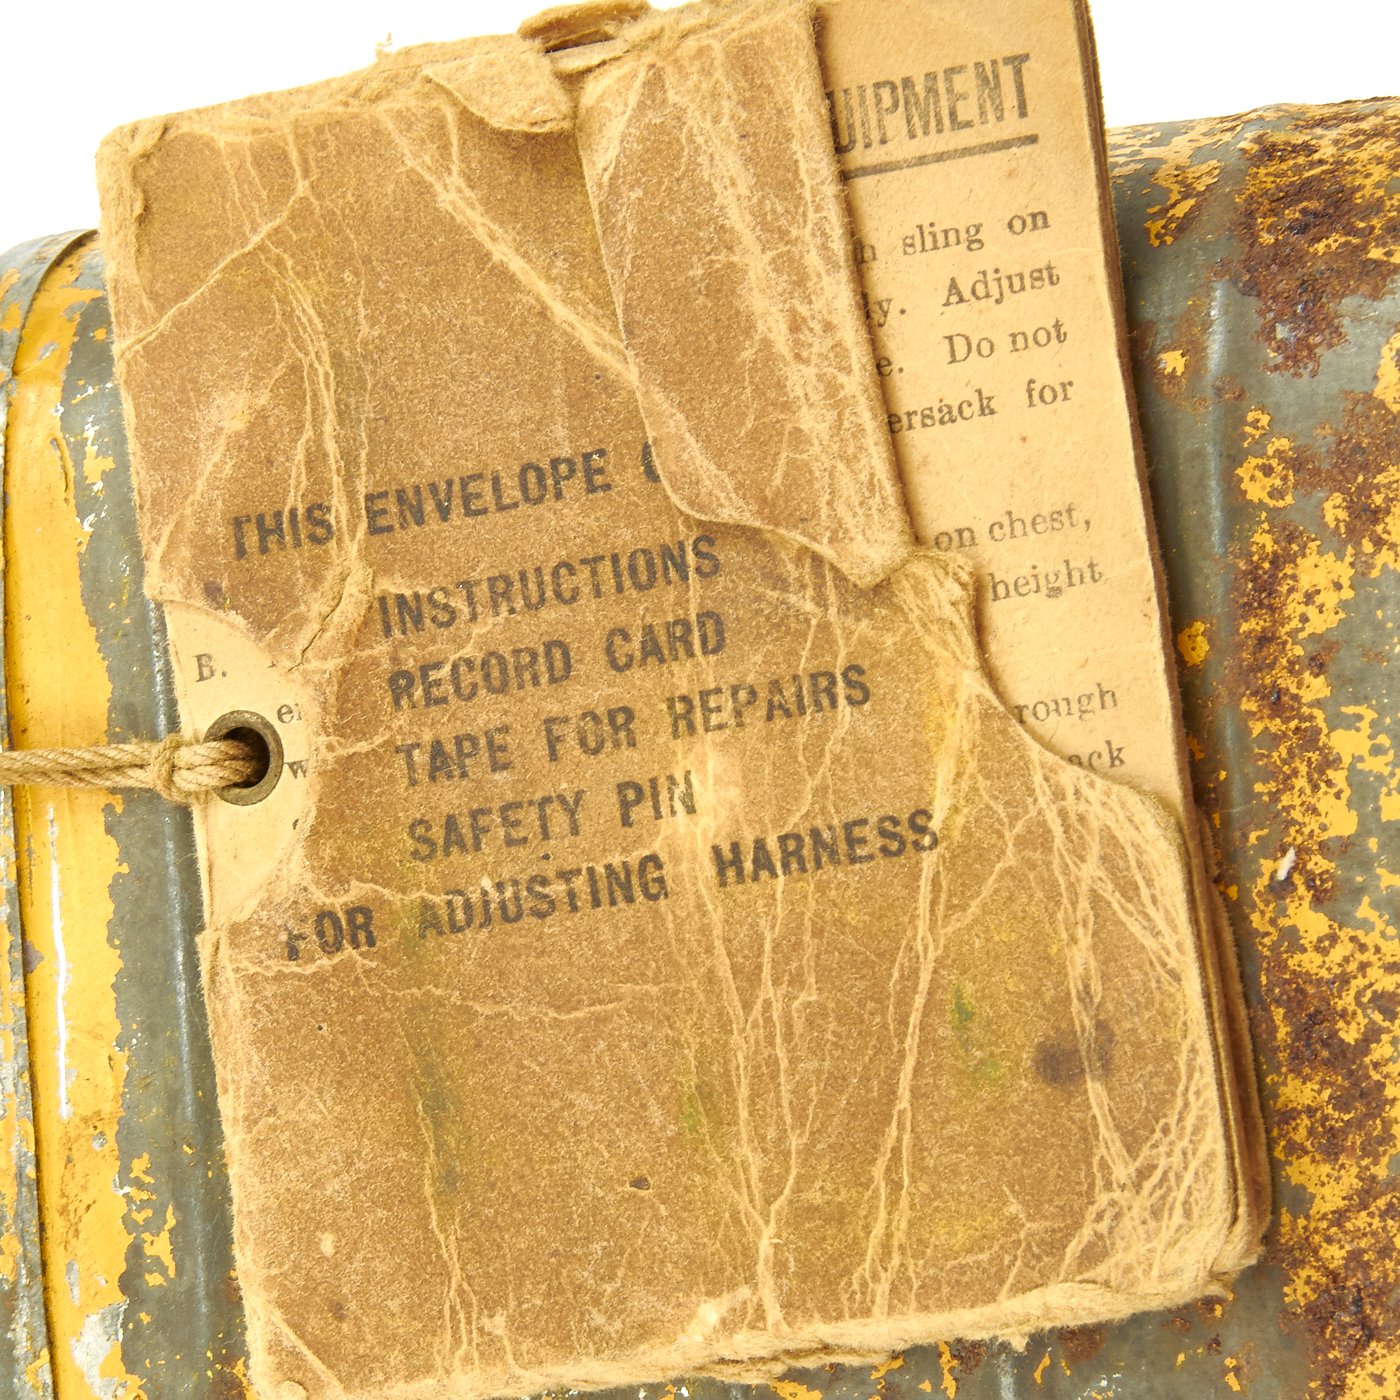 UIPMENT
sling on
Adjust
Do not
ersack for
on chest,
height
rough
ack
THIS ENVELOPE
INSTRUCTIONS
RECORD CARD
TAPE FOR REPAIRS
SAFETY PIN
FOR ADJUSTING HARNESS
B.